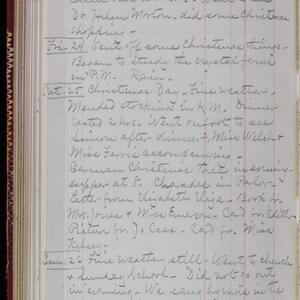 Dr. Helen Morton. did some Christmas
shopping -
Fri. 24 Sent off some Christmas things -
Began to study the crystal forms
in P.M. Rain.
Sat. 25 Christmas Day - Fine weather.
Mended stocking in A.M. Dinner
lasted 2 hrs. Went out to see
after dinner, Miss Welsh
Miss Ferris accompanying -
German Christmas tree in evening -
supper at 8. Charades in Parlor -
Letter from Elizabeth - Book fr
Mrs. Jones & Miss Emerson. Cad fr. Edith
fr. J. Case - Cad fr. Miss
Kelsey.
Sun. 26 Fine weather still. Went to church
& Sunday School - Did not go out
in evening - We sang hymns in the